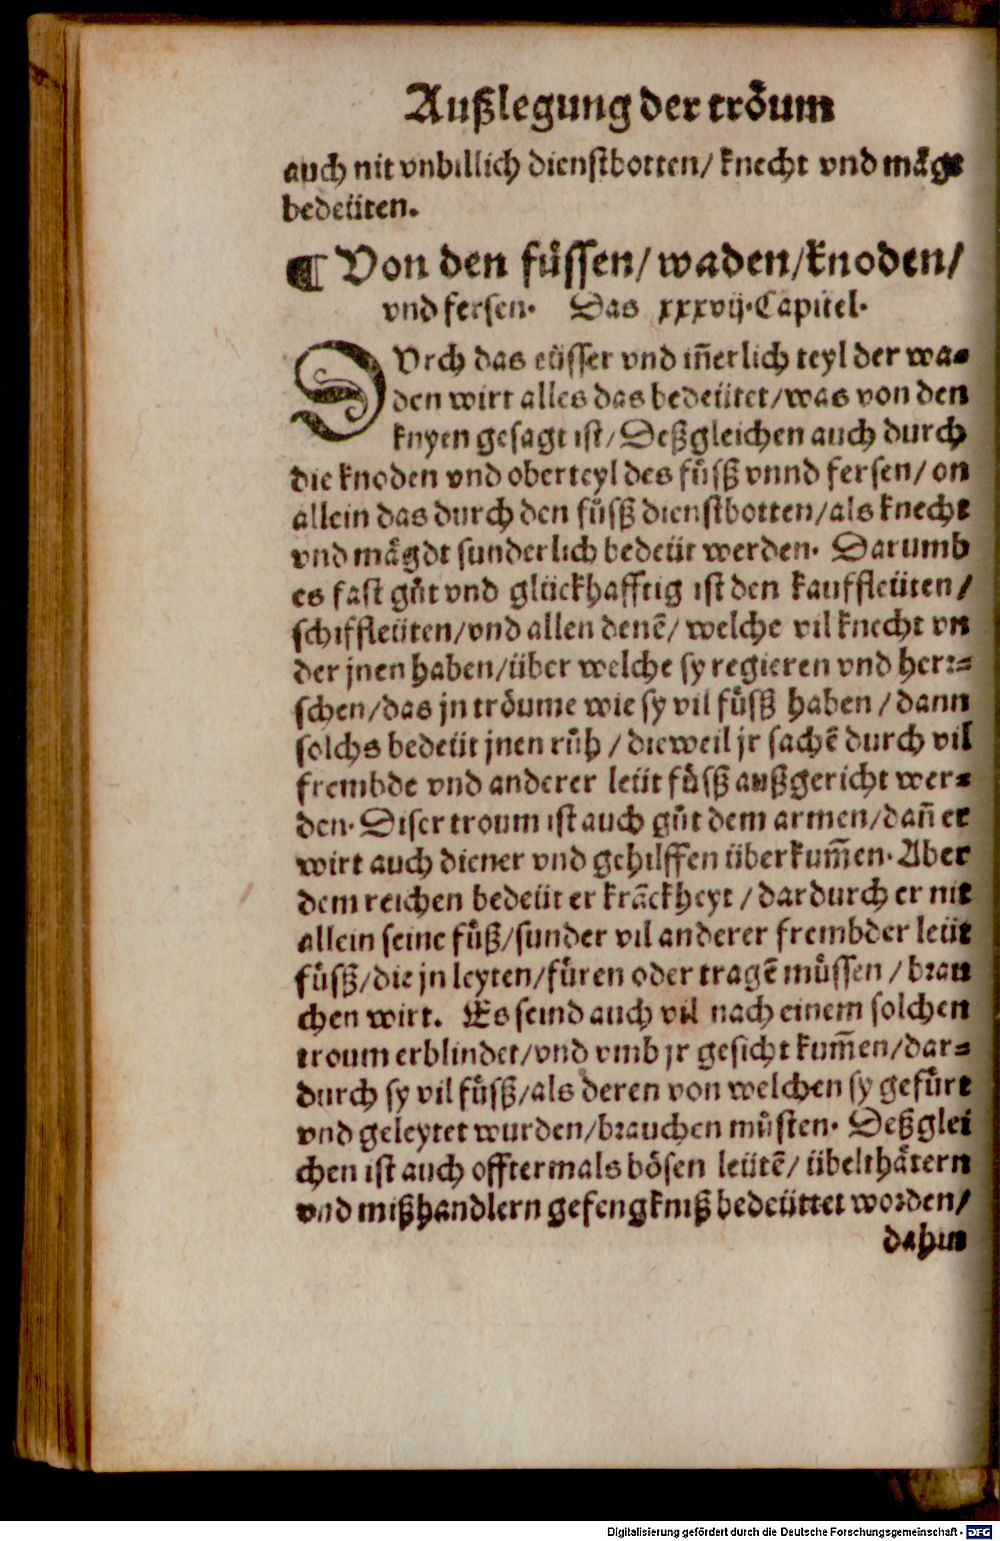 Außlegung der tröum
auch nit vnbillich dienstbotten/ knecht vnd mägt
bedeüten.
¶ Von den füssen/ waden/ knoden/
vnd fersen. Das xxxvij. Capitel.
DVrch das eüsser vnd iñerlich teyl der wa-
den wirt alles das bedeütet/ was von den
knyen gesagt ist/ Deßgleichen auch durch
die knoden vnd oberteyl des fůsß vnnd fersen/ on
allein das durch den fůsß dienstbotten/ als knecht
vnd mägdt sunderlich bedeüt werden. Darumb
es fast gůt vnd glückhafftig ist den kauffleüten/
schiffleüten/ vnd allen denē/ welche vil knecht vn
der jnen haben/ über welche sy regieren vnd herr-
schen/ das jn tröume wie sy vil fůsß haben/ dann
solchs bedeüt jnen růh/ dieweil jr sachē durch vil
frembde vnd anderer leüt fůsß außgericht wer-
den. Diser troum ist auch gůt dem armen/ dañ er
wirt auch diener vnd gehilffen überkum̄en. Aber
dem reichen bedeüt er krāckheyt/ dardurch er nit
allein seine fůß/ sunder vil anderer frembder leüt
fůsß/ die jn leyten/ fůren oder tragē můssen/ brau
chen wirt. Es seind auch vil nach einem solchen
troum erblindet/ vnd vmb jr gesicht kum̄en/ dar-
durch sy vil fůsß/ als deren von welchen sy gefůrt
vnd geleytet wurden/ brauchen můsten. Deßglei
chen ist auch offtermals bösen leütē/ übelthätern
vnd mißhandlern gefengkniß bedeüttet worden/
dahin
Digitalisierung gefördert durch die Deutsche Forschungsgemeinschaft - DFG